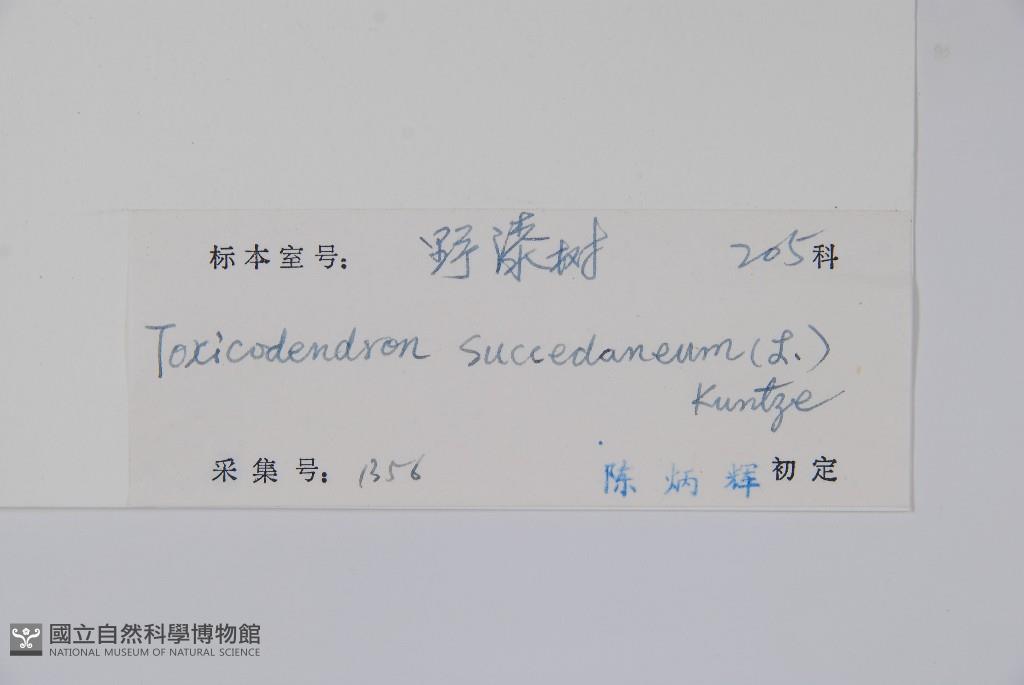 标本室号： 野漆树 205科
Toxicodendron succedaneum (L.)
Kuntze
采集号： 1356 陈炳辉 初定
國立自然科學博物館
NATIONAL MUSEUM OF NATURAL SCIENCE